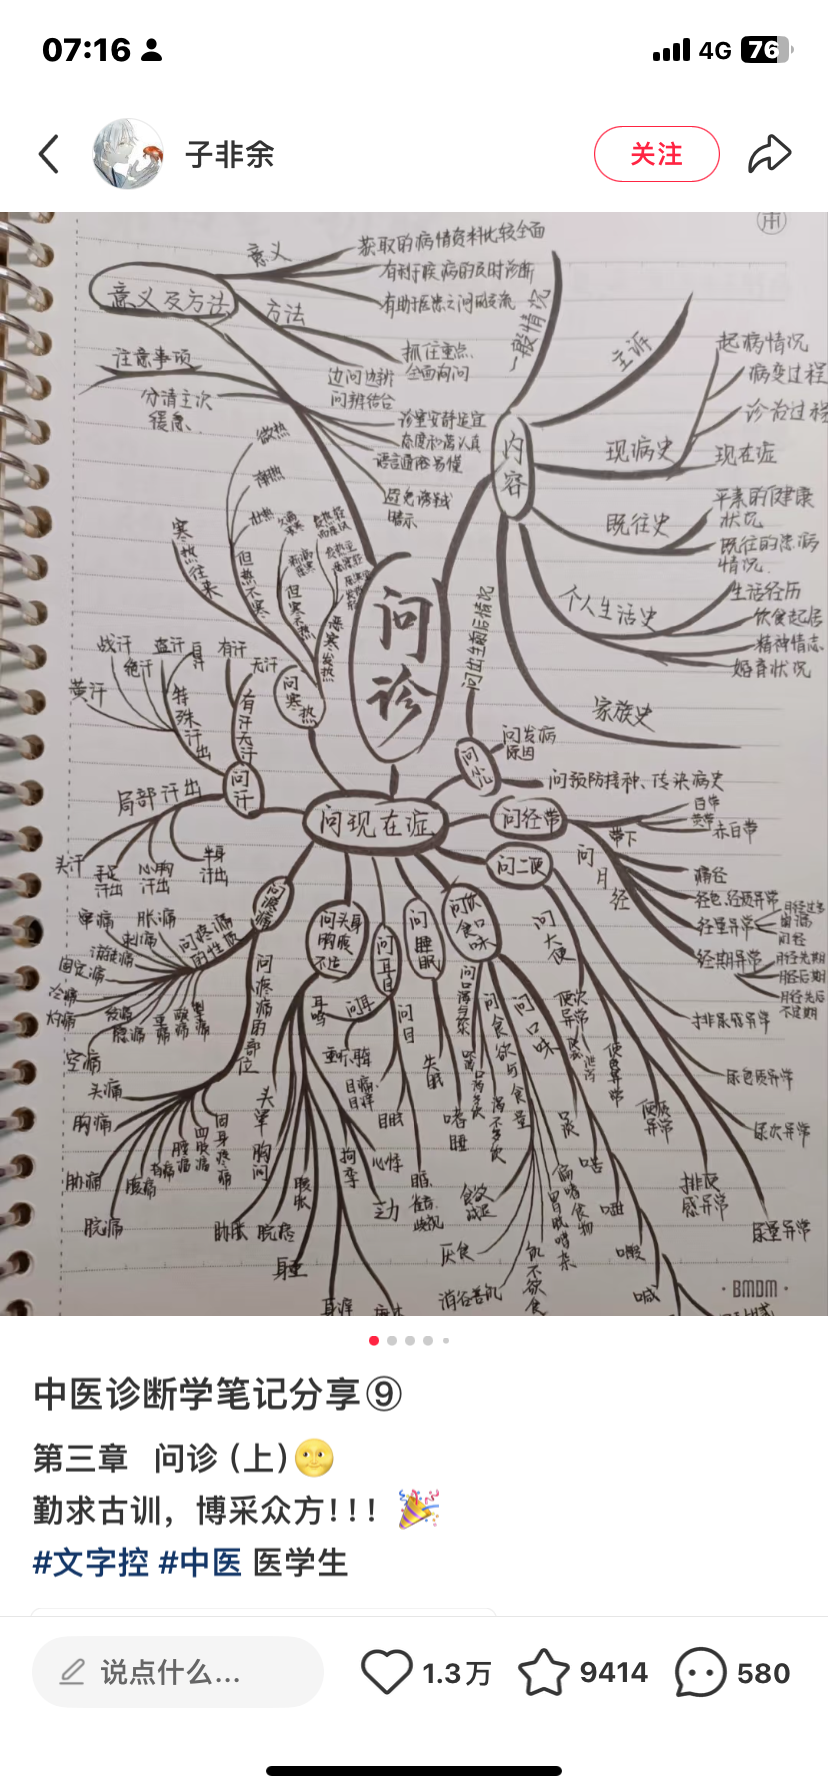 07:16
4G
76
子非余
关注
意义及方法
意义
获取的病情资料比较全面
有利于疾病的及时诊断
有助于医患之间的交流
方法
抓住重点
全面询问
边问边辨
问辨结合
注意事项
分清主次
缓急
诊室安静适宜
态度和蔼认真
语言通俗易懂
避免诱线
暗示
问诊
内容
一般情况
主诉
现病史
起病情况
病变过程
诊治过程
现在症
既往史
平素的健康
状况
既往的患病
情况
个人生活史
生活经历
饮食起居
精神情志
婚育状况
家族史
问现在症
问寒热
寒热往来
但热不寒
微热
潮热
壮热
但寒不热
恶寒发热
问汗
有汗无汗
有汗
无汗
特殊汗出
战汗
盗汗
自汗
绝汗
黄汗
局部汗出
头汗
手足
汗出
心胸
汗出
半身
汗出
问疼痛
问疼痛
的性质
胀痛
刺痛
固定痛
冷痛
灼痛
空痛
问疼痛的部位
头痛
胸痛
胁痛
脘痛
腹痛
腰痛
四肢痛
周身疼痛
问头身
胸腹
不适
头晕
胸闷
胁胀
脘痞
腹胀
身重
拘挛
乏力
心悸
问耳目
问耳
耳鸣
重听
问目
目痛
目痒
目眩
问睡眠
失眠
嗜睡
问饮
食口
味
问食欲与食量
厌食
消谷善饥
饥不欲食
偏嗜食物
问口味
口淡
口苦
问二便
问大便
便次
异常
便质
异常
排便
感异常
排尿感异常
尿色质异常
尿次异常
尿量异常
问经带
带下
白带
黄带
赤白带
问月经
痛经
经色、经质异常
经量异常
月经过多
闭经
经期异常
月经先期
月经后期
月经先后
不定期
问儿
问出生前后情况
问发病
原因
问预防接种、传染病史
·BMDM·
中医诊断学笔记分享⑨
第三章 问诊（上）🌝
勤求古训，博采众方！！！🎉
#文字控 #中医 医学生
说点什么...
1.3万
9414
580